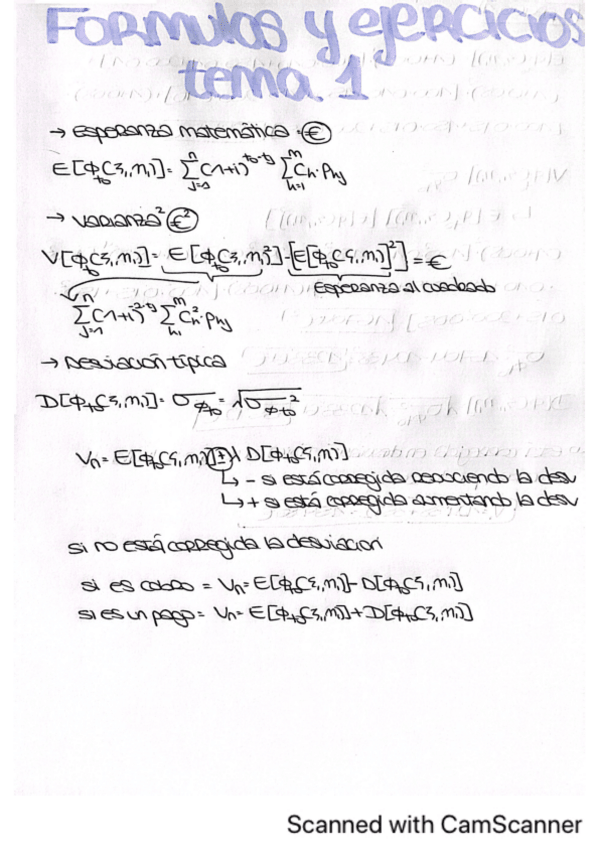 Formulas y ejercicios
tema 1
→ esperanza matemática = €
E[ϕt0(ξ, m)] = Σ(j=1, n) (1+i)^(t0-tj) Σ(h=1, m) Ch · Phj
→ varianza² €²
V[ϕt0(ξ, m)] = E[ϕt0(ξ, m)²] - [E[ϕt0(ξ, m)]²] = €
Esperanza al cuadrado
Σ(j=1, n) (1+i)^(-2·tj) Σ(h=1, m) Ch² · Phj
→ Desviación típica
D[ϕt0(ξ, m)] = σϕt0 = √σϕt0²
Vn = E[ϕt0(ξ, m)] ± λ D[ϕt0(ξ, m)]
↳ - si está corregida reduciendo la desv
↳ + si está corregida aumentando la desv
si no está corregida la desviacion
si es cobro = Vn = E[ϕt0(ξ, m)] - D[ϕt0(ξ, m)]
si es un pago = Vn = E[ϕt0(ξ, m)] + D[ϕt0(ξ, m)]
Scanned with CamScanner